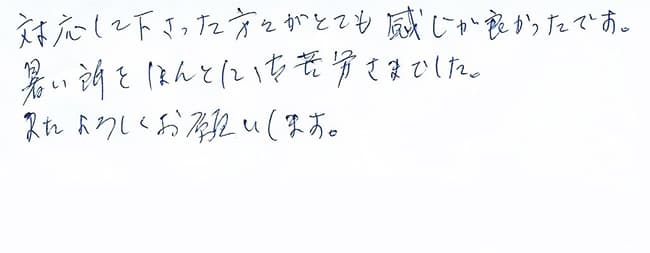 対応して下さった方々がとても感じが良かったです。
暑い所をほんとにご苦労さまでした。
またよろしくお願いします。